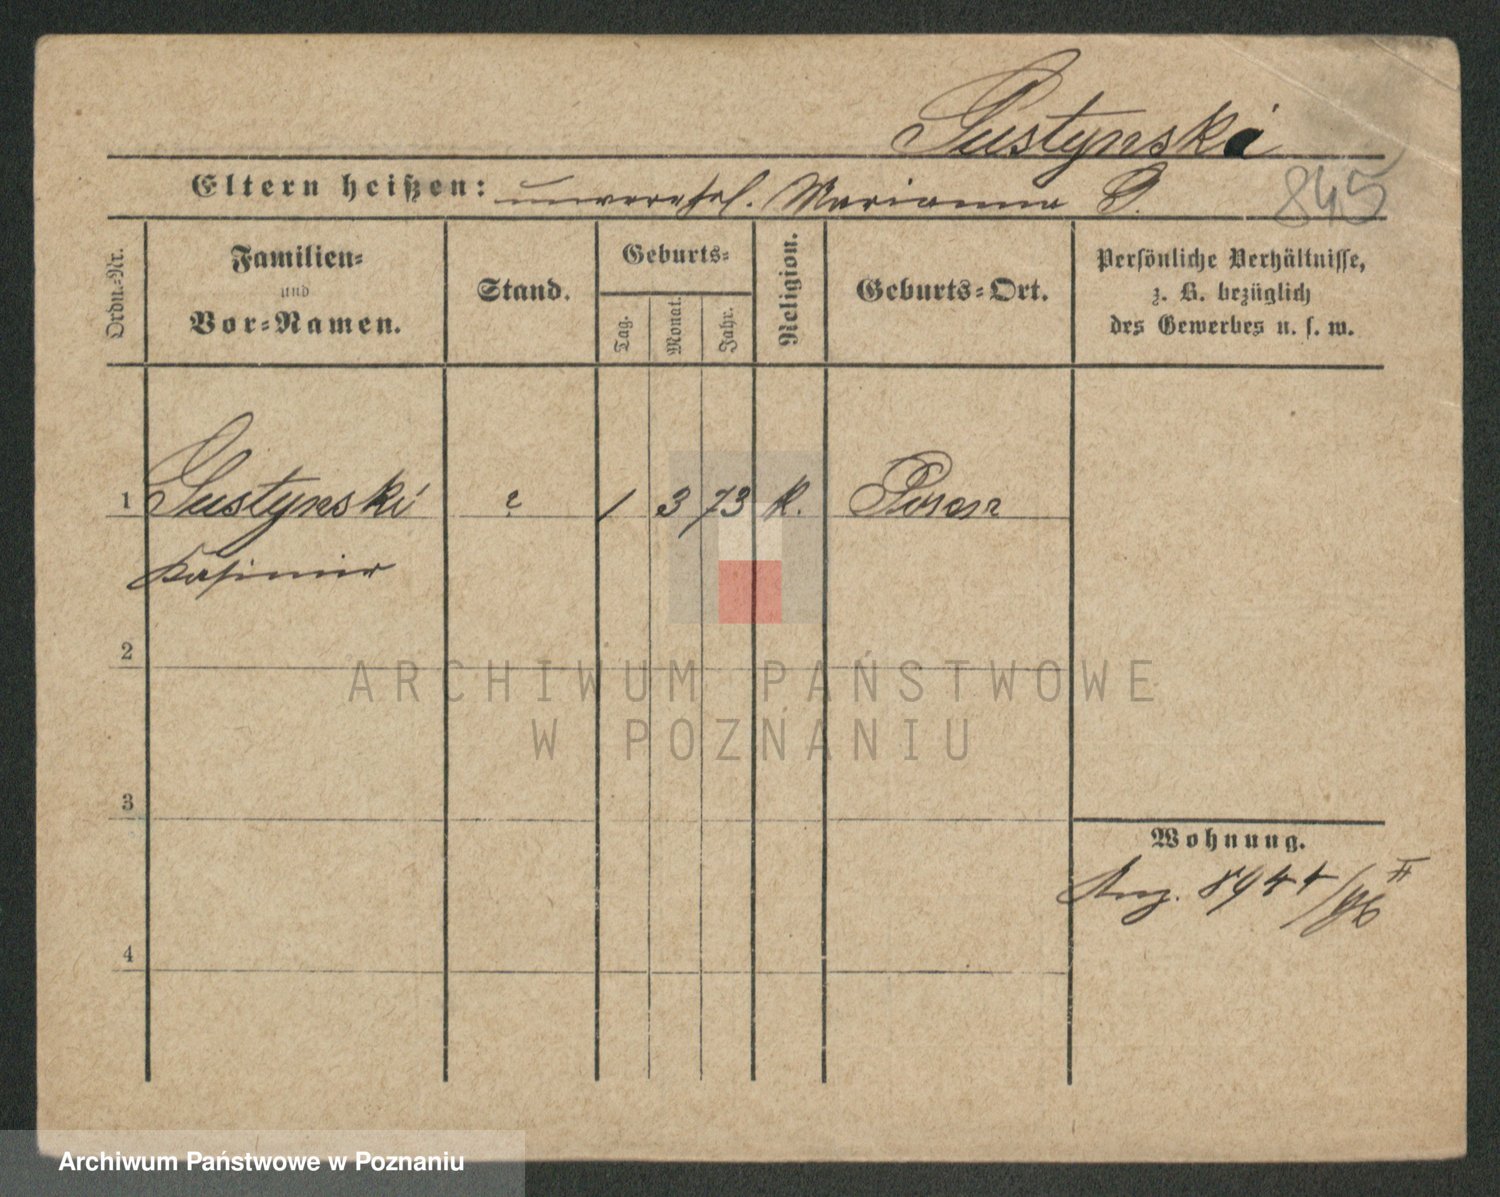 Gustynski
Eltern heißen: unverehel. Marianna G.
845
Ordn.-Nr.
Familien-
und
Vor-Namen.
Stand.
Geburts-
Tag.
Monat.
Jahr.
Religion.
Geburts-Ort.
Persönliche Verhältnisse,
z. B. bezüglich
des Gewerbes u. s. w.
1 Gustynski 1 3 73 K. Posen
Kasimir
2
ARCHIWUM PAŃSTWOWE
W POZNANIU
3
Wohnung.
4
Archiwum Państwowe w Poznaniu